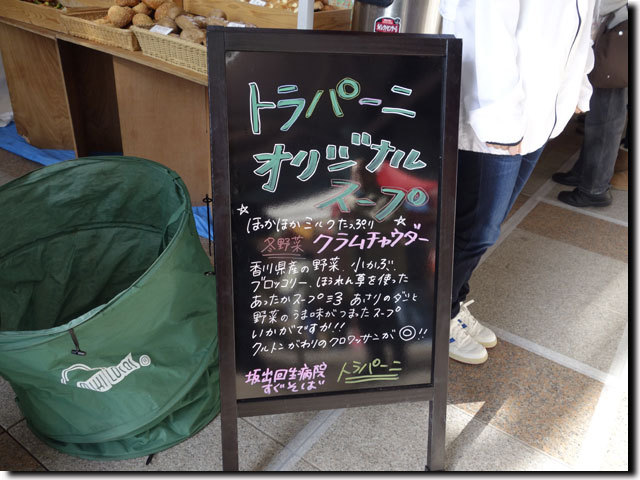 トラパーニ
オリジナル
スープ
ほっかほかミルクたっぷり
冬野菜 クラムチャウダー
香川県産の野菜、小かぶ、
ブロッコリー、ほうれん草を使った
あったかスープ≡3 あさりのダシと
野菜のうま味がつまったスープ
いかがですか!!!
クルトンがわりのクロワッサンが◎!!
坂出回生病院
すぐそば
トラパーニ